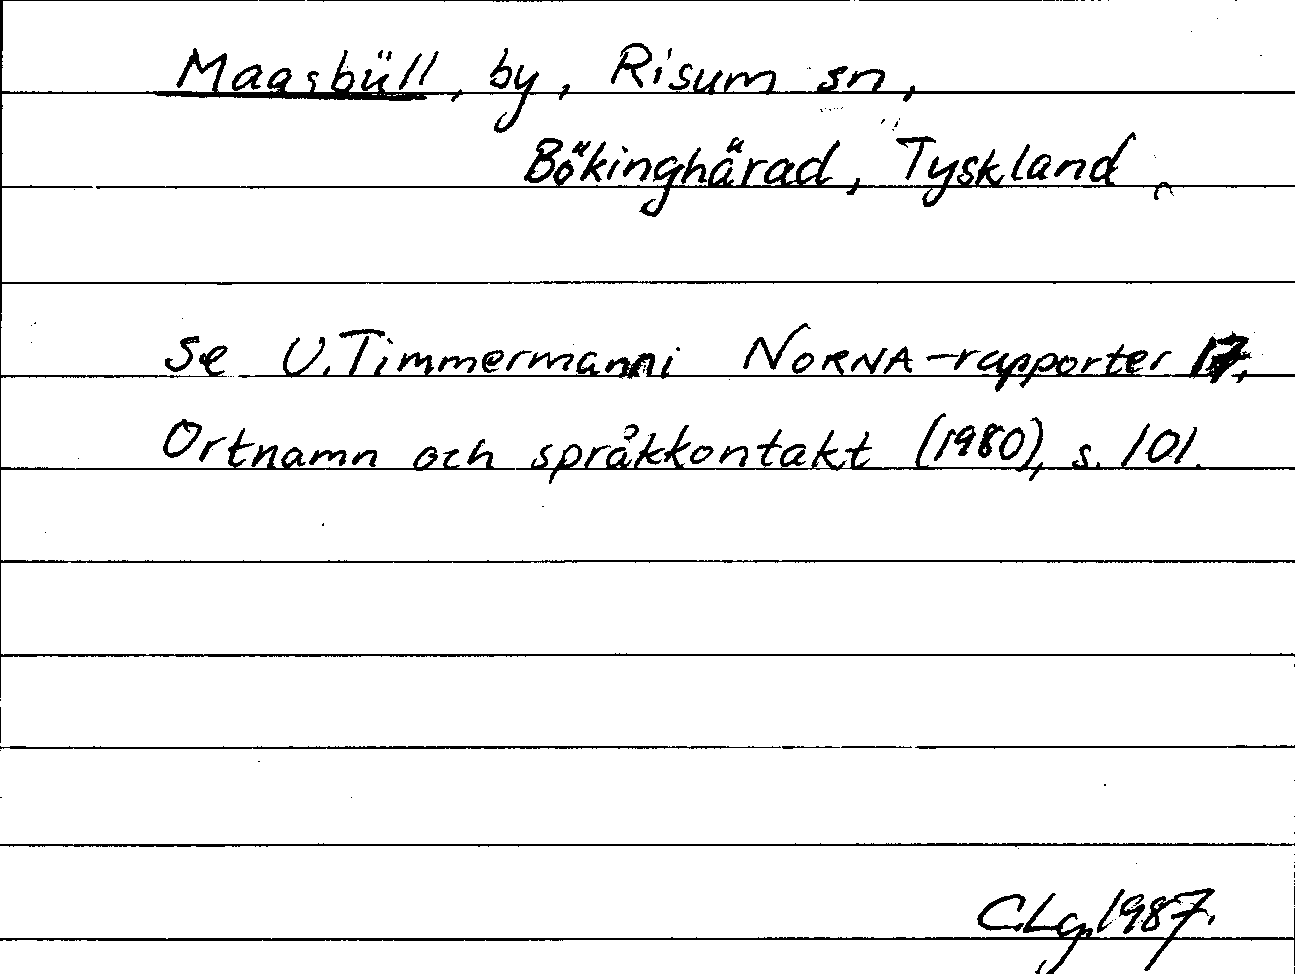 Maasbüll, by, Risum sn,
Bökinghärad, Tyskland.
Se U. Timmermann i NORNA-rapporter 17,
Ortnamn och språkkontakt (1980), s. 101.
C.Lg. 1987.